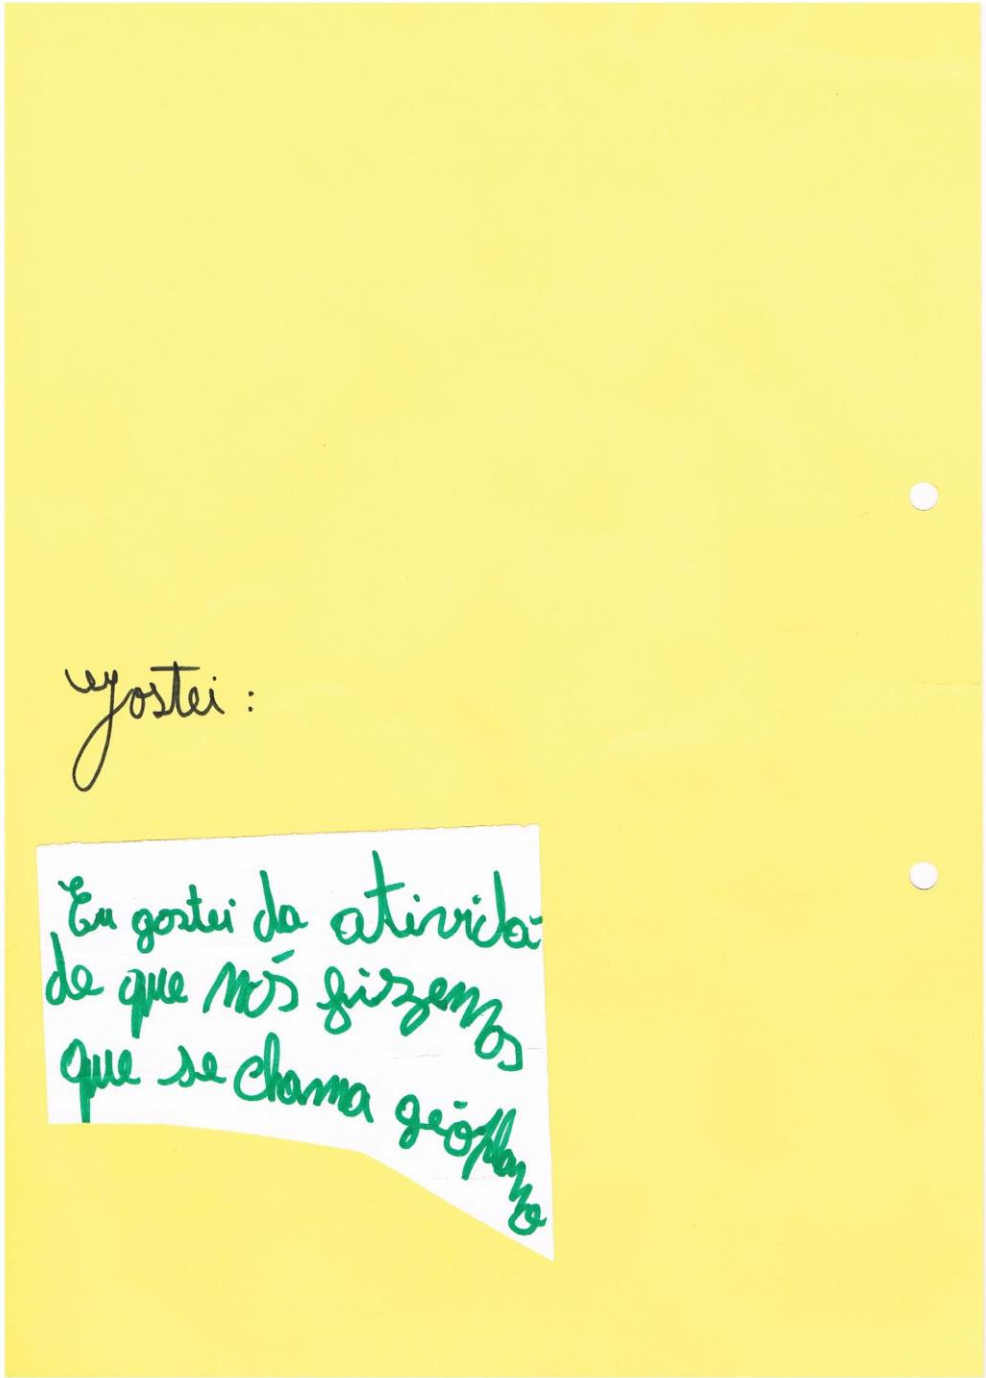 Gostei :
Eu gostei da ativida-
de que nós fizemos
que se chama geóplano